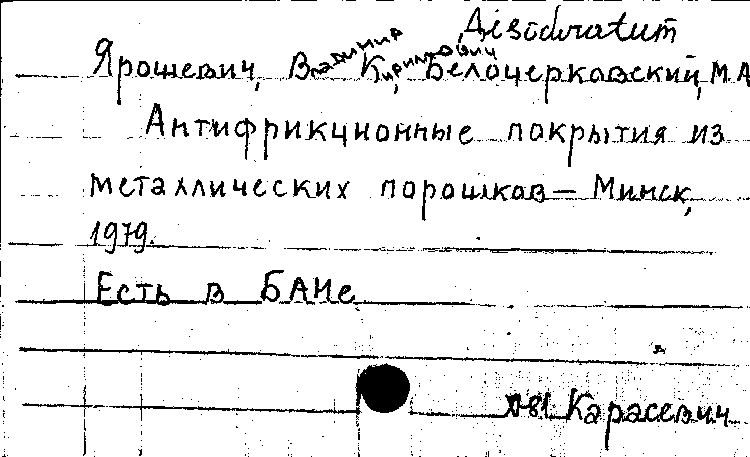 Дisidvratum
Ярошевич, Владимир Кириллович, Белочерковский, М А
Антифрикционные покрытия из
металлических порошков — Минск,
1979.
Есть в БАНе
081 Карасевич